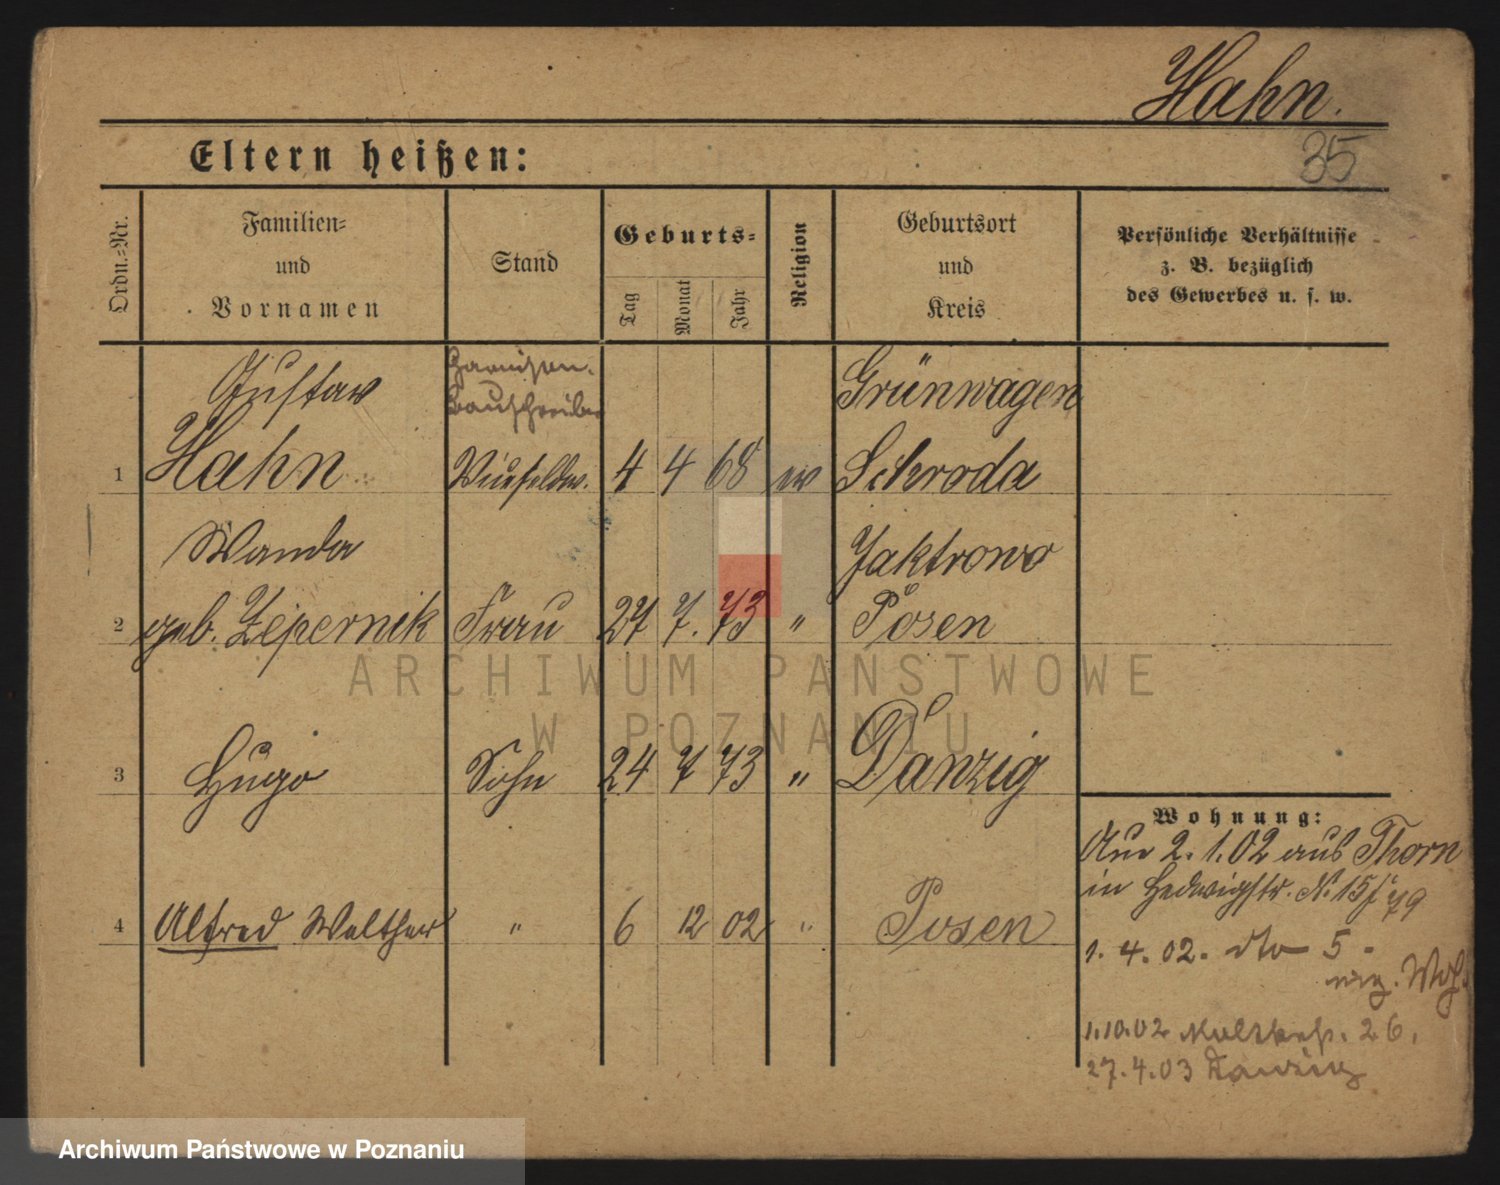 Hahn.
35
Eltern heißen:
Ordn.-Nr.
Familien-
und
Vornamen
Stand
Geburts-
Tag
Monat
Jahr
Religion
Geburtsort
und
Kreis
Persönliche Verhältnisse
z. B. bezüglich
des Gewerbes u. s. w.
Gustav Garnison- Grünwagen
Bauschreiber
1 Hahn Vizefeldw. 4 4 68 ev Schroda
Wanda Jaktrowo
2 geb. Zepernik Frau 27 7. 73 " Posen
3 Hugo Sohn 24 7 73 " Danzig
4 Alfred Walther " 6 12 02 " Posen
Wohnung:
2. 1. 02 aus Thorn
in Hedwigstr. № 15
1. 4. 02. dto 5
1.10.02 26.
27.4.03 Danzig
ARCHIWUM PAŃSTWOWE
W POZNANIU
Archiwum Państwowe w Poznaniu